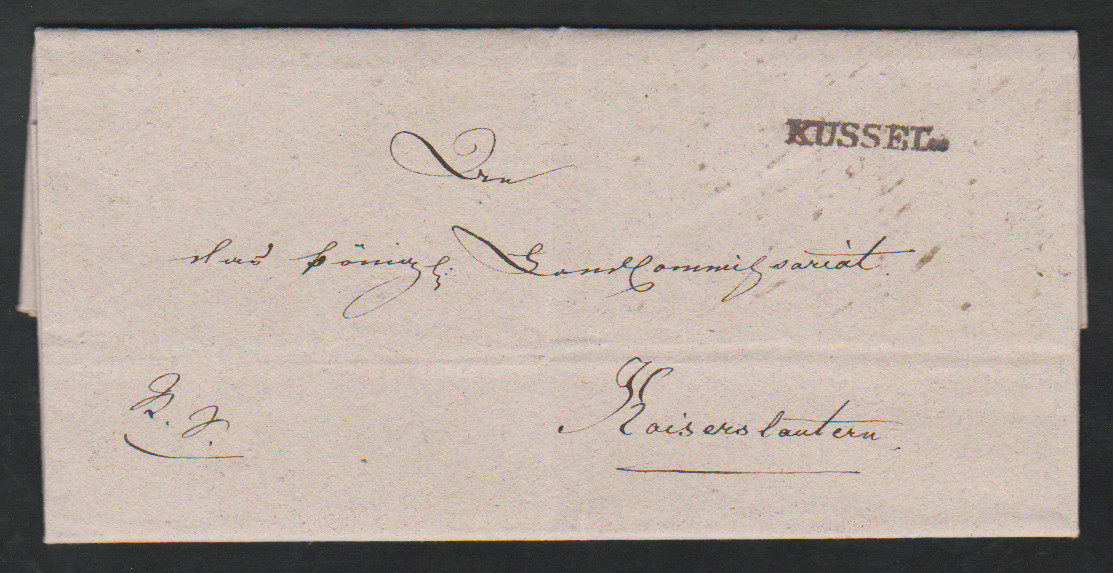 KUSSEL.
An
das königl: Landcommissariat.
R. S.
Kaiserslautern.